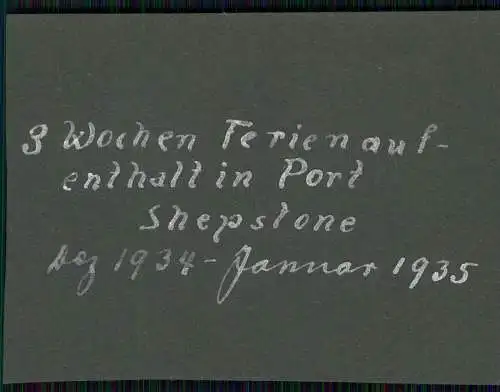 3 Wochen Ferienauf-
enthalt in Port
Shepstone
Dez 1934 - Januar 1935